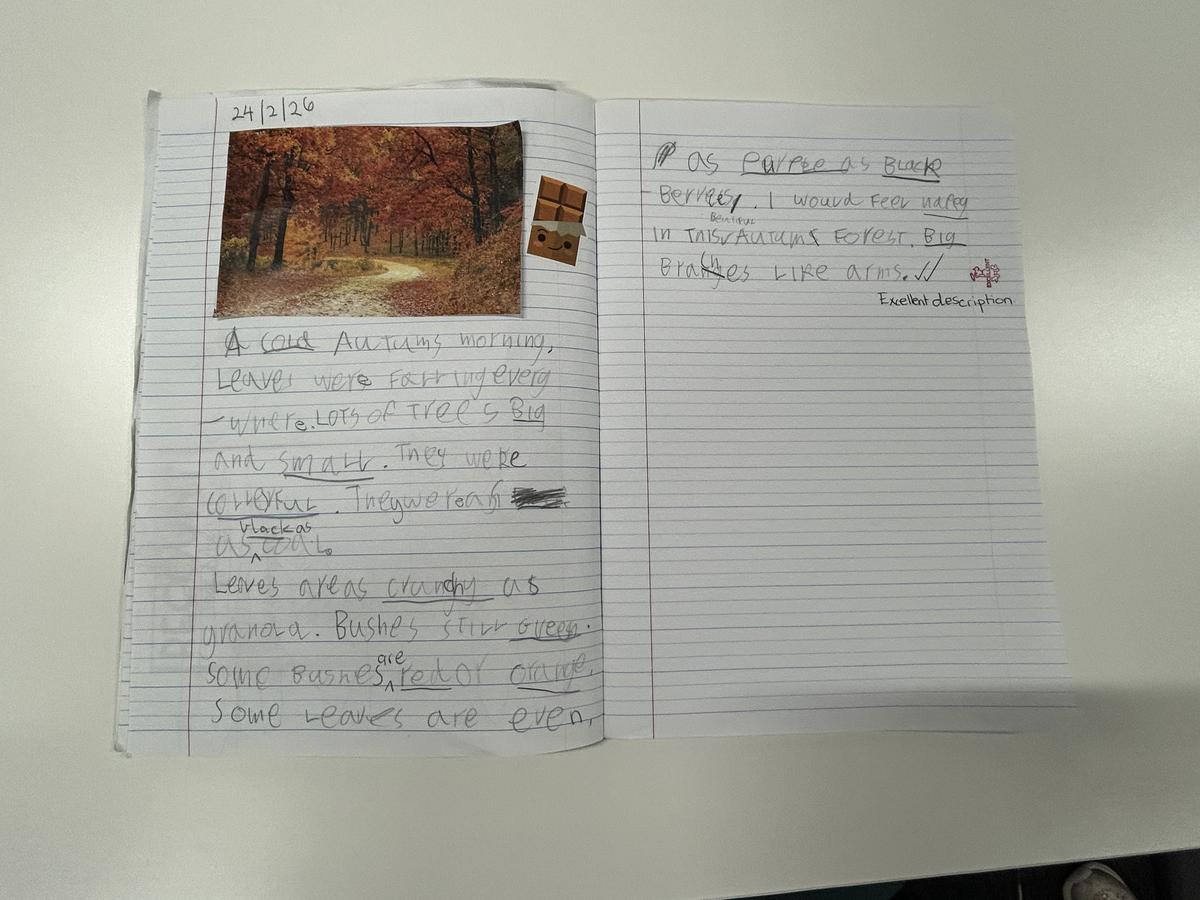 24/2/26
A cold Autums morning,
Leaves were Falling every
-where. LOTS OF Tree s Big
and small. They were
colleyful. They wereah
black as
as coal.
Leaves are as crunchy as
granola. Bushes STILL Green.
are
some Bushes red or orange.
Some Leaves are even,
as Purple as Black
-Berreis, I would Feel happy
Beutiful
in This Autums Forest. Big
ch
Branches LIKE arms.
Exellent description